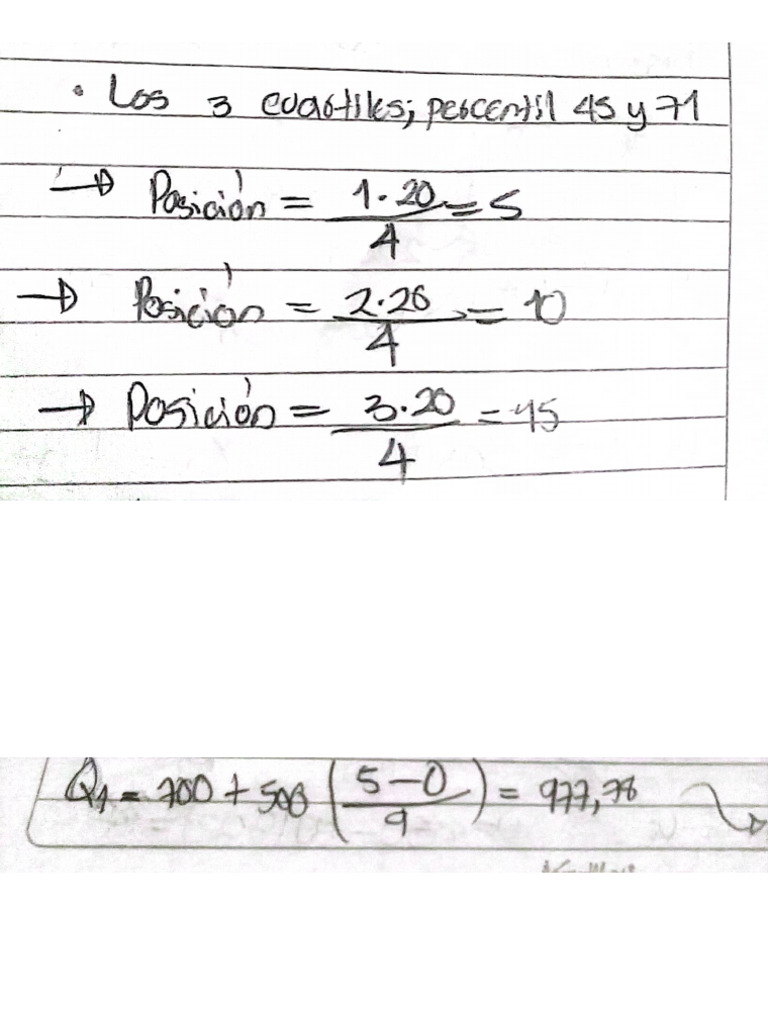 • Los 3 cuartiles; percentil 45 y 71
→ Posición = 1·20/4 = 5
→ Posición = 2·20/4 = 10
→ Posición = 3·20/4 = 15
Q1 = 700 + 500 (5-0/9) = 977,78